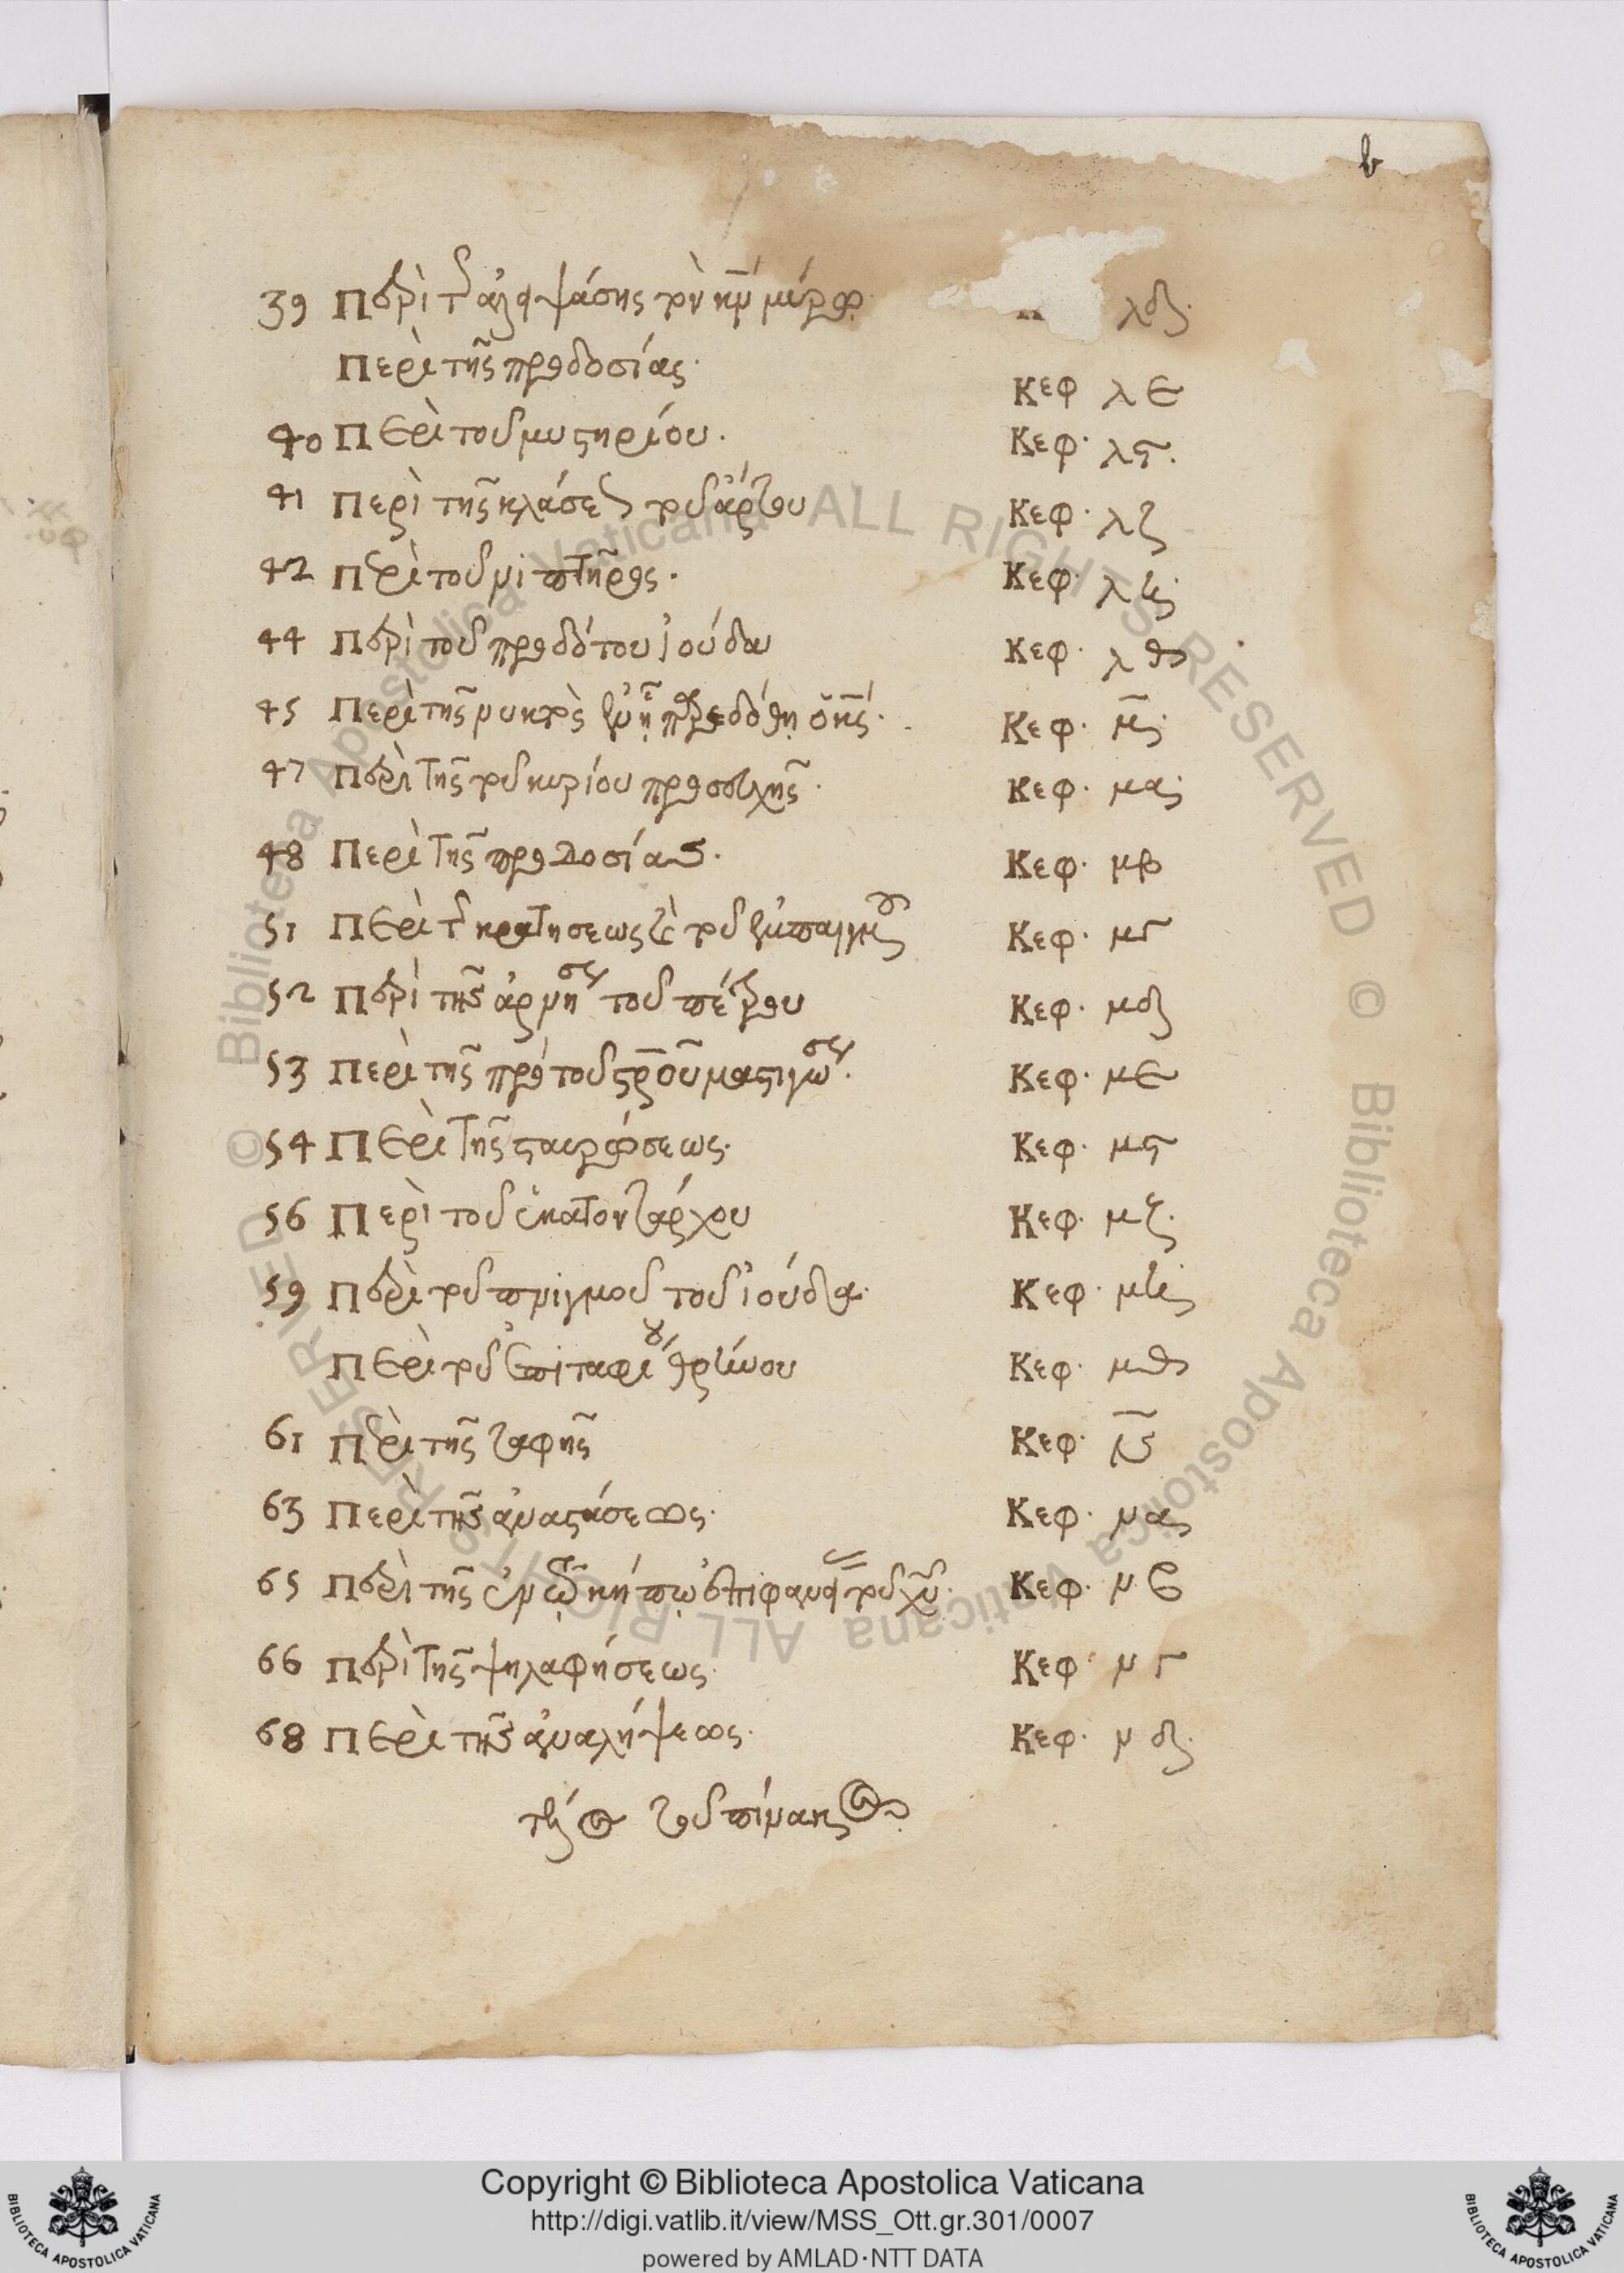 b
39 Περὶ τ(ῆς) ἀλειψάσης τὸν κν μύρῳ. λδ·
Περὶ τῆς προδοσίας· Κεφ λε
40 Περὶ τοῦ μυστηρίου. Κεφ· λϛ.
41 Περὶ τῆς κλάσεως τοῦ ἄρτου Κεφ· λζ
42 Περὶ τοῦ νιπτῆρος. Κεφ· λη·
44 Περὶ τοῦ προδότου ἰούδα Κεφ· λθ
45 Περὶ τῆς νυκτὸς ἐν ᾗ παρεδόθη ὁ κς· Κεφ· μ·
47 Περὶ τῆς τοῦ κυρίου προσευχῆς· Κεφ· μα·
48 Περὶ τῆς προδοσίας. Κεφ· μβ
51 Περὶ τ(ῆς) κρατήσεως καὶ τοῦ ἐμπαιγμοῦ Κεφ· μγ
52 Περὶ τῆς ἀρνήσεως τοῦ πέτρου Κεφ· μδ
53 Περὶ τῆς πρὸ τοῦ στρου μαστιγώσεως. Κεφ· με
54 Περὶ τῆς σταυρώσεως. Κεφ· μϛ
56 Περὶ τοῦ ἑκατοντάρχου Κεφ· μζ·
59 Περὶ τοῦ πνιγμοῦ τοῦ ἰούδα· Κεφ· μη·
Περὶ τοῦ ἐπιταφίου θρήνου Κεφ· μθ
61 Περὶ τῆς ταφῆς Κεφ· ν
63 Περὶ τῆς ἀναστάσεως. Κεφ· να
65 Περὶ τῆς ἐν τῷ κήπῳ ἐπιφανείας τοῦ χυ. Κεφ· νβ
66 Περὶ τῆς ψηλαφήσεως. Κεφ· νγ
68 Περὶ τῆς ἀναλήψεως. Κεφ· νδ·
τέλος τοῦ πίνακος
Copyright © Biblioteca Apostolica Vaticana
http://digi.vatlib.it/view/MSS_Ott.gr.301/0007
powered by AMLAD·NTT DATA
BIBLIOTECA APOSTOLICA VATICANA
BIBLIOTECA APOSTOLICA VATICANA
© Biblioteca Apostolica Vaticana ALL RIGHTS RESERVED © Biblioteca Apostolica Vaticana ALL RIGHTS RESERVED